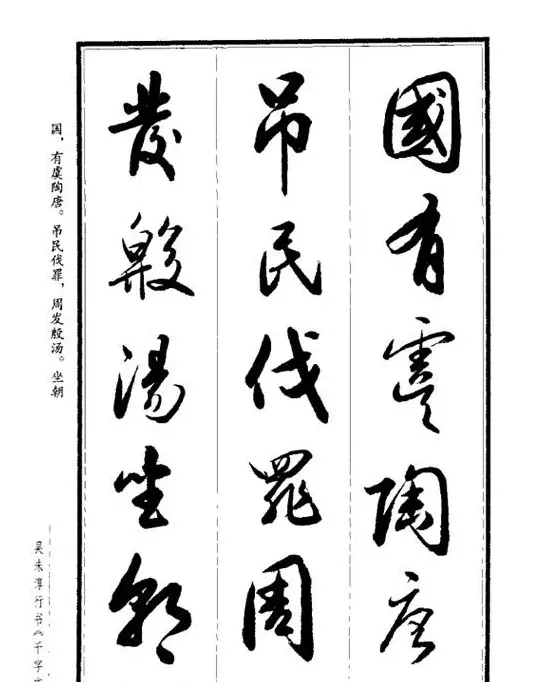 國有虞陶唐
吊民伐罪周
發殷湯坐朝
国，有虞陶唐。吊民伐罪，周发殷汤。坐朝
吴未淳行书《千字文